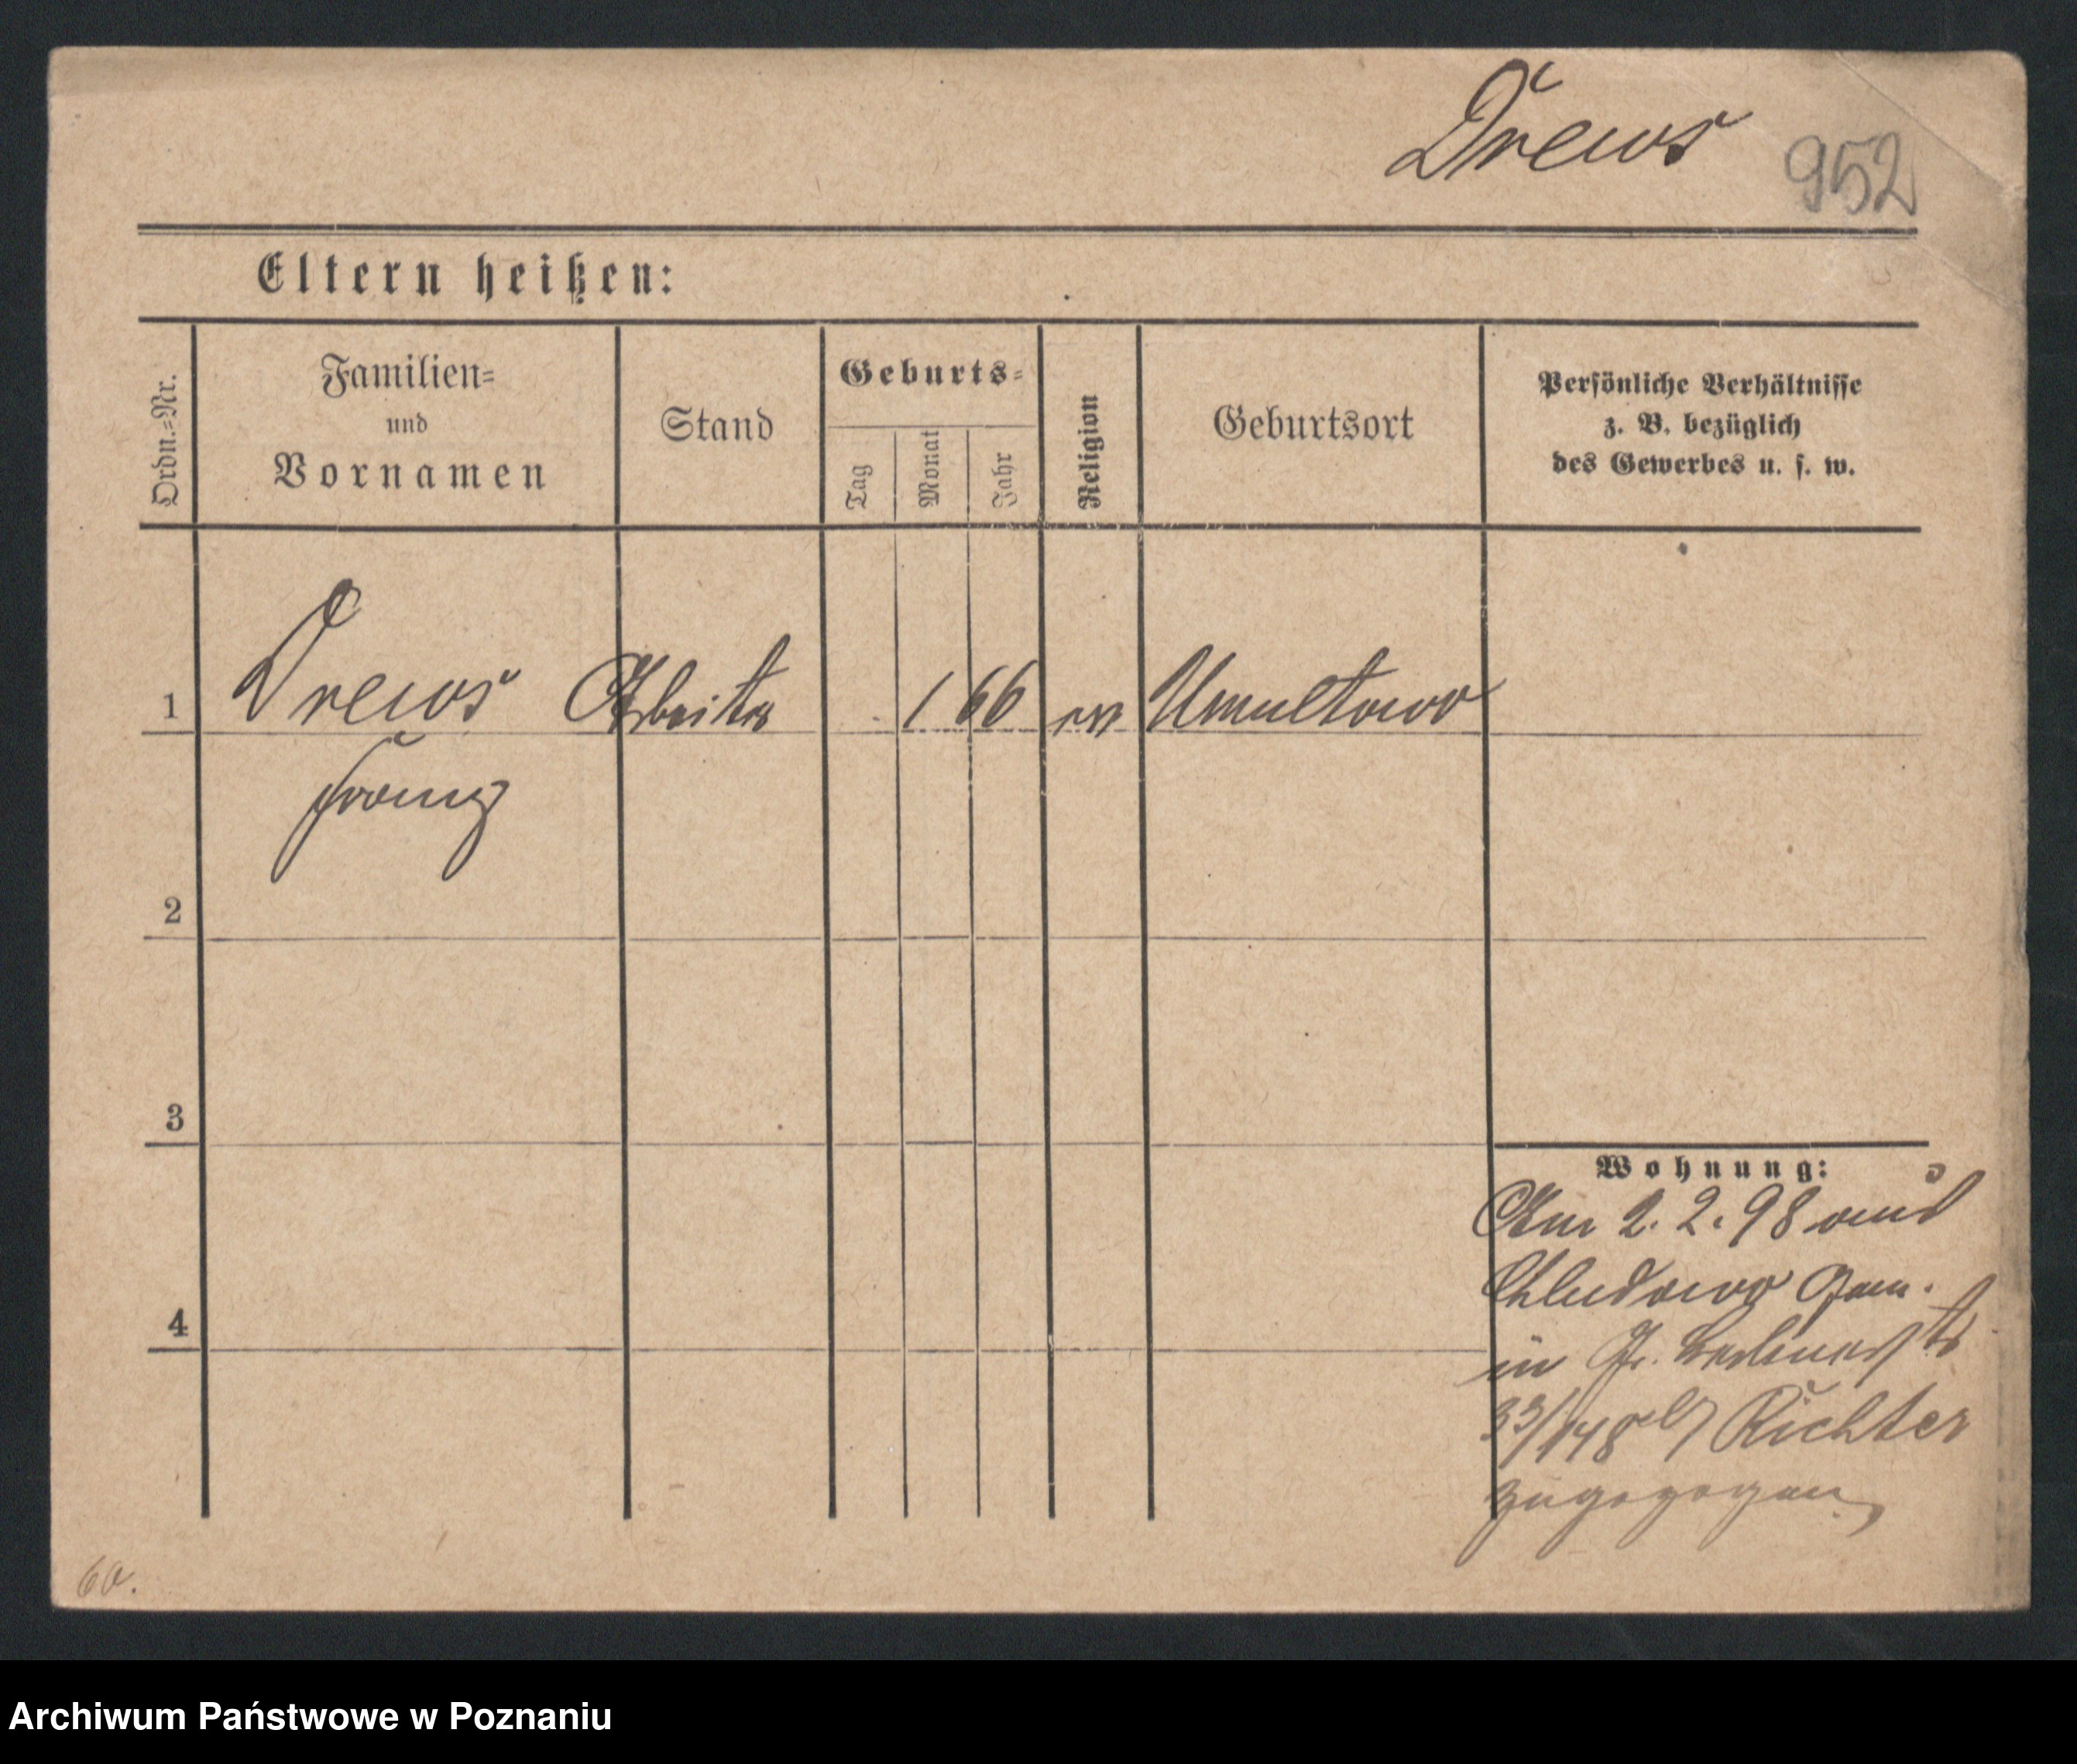 Drews 952
Eltern heißen:
Ordn.=Nr.
Familien=
und
Vornamen
Stand
Geburts=
Tag
Monat
Jahr
Religion
Geburtsort
Persönliche Verhältnisse
z. B. bezüglich
des Gewerbes u. s. w.
1 Drews Arbeiter 1 66 ev Umultowo
Franz
2
3
4
Wohnung:
Am 2. 2. 98 aus
Chludowo
in Gr. Berlinerstr
33/148 b/ Richter
zugezogen
60.
Archiwum Państwowe w Poznaniu